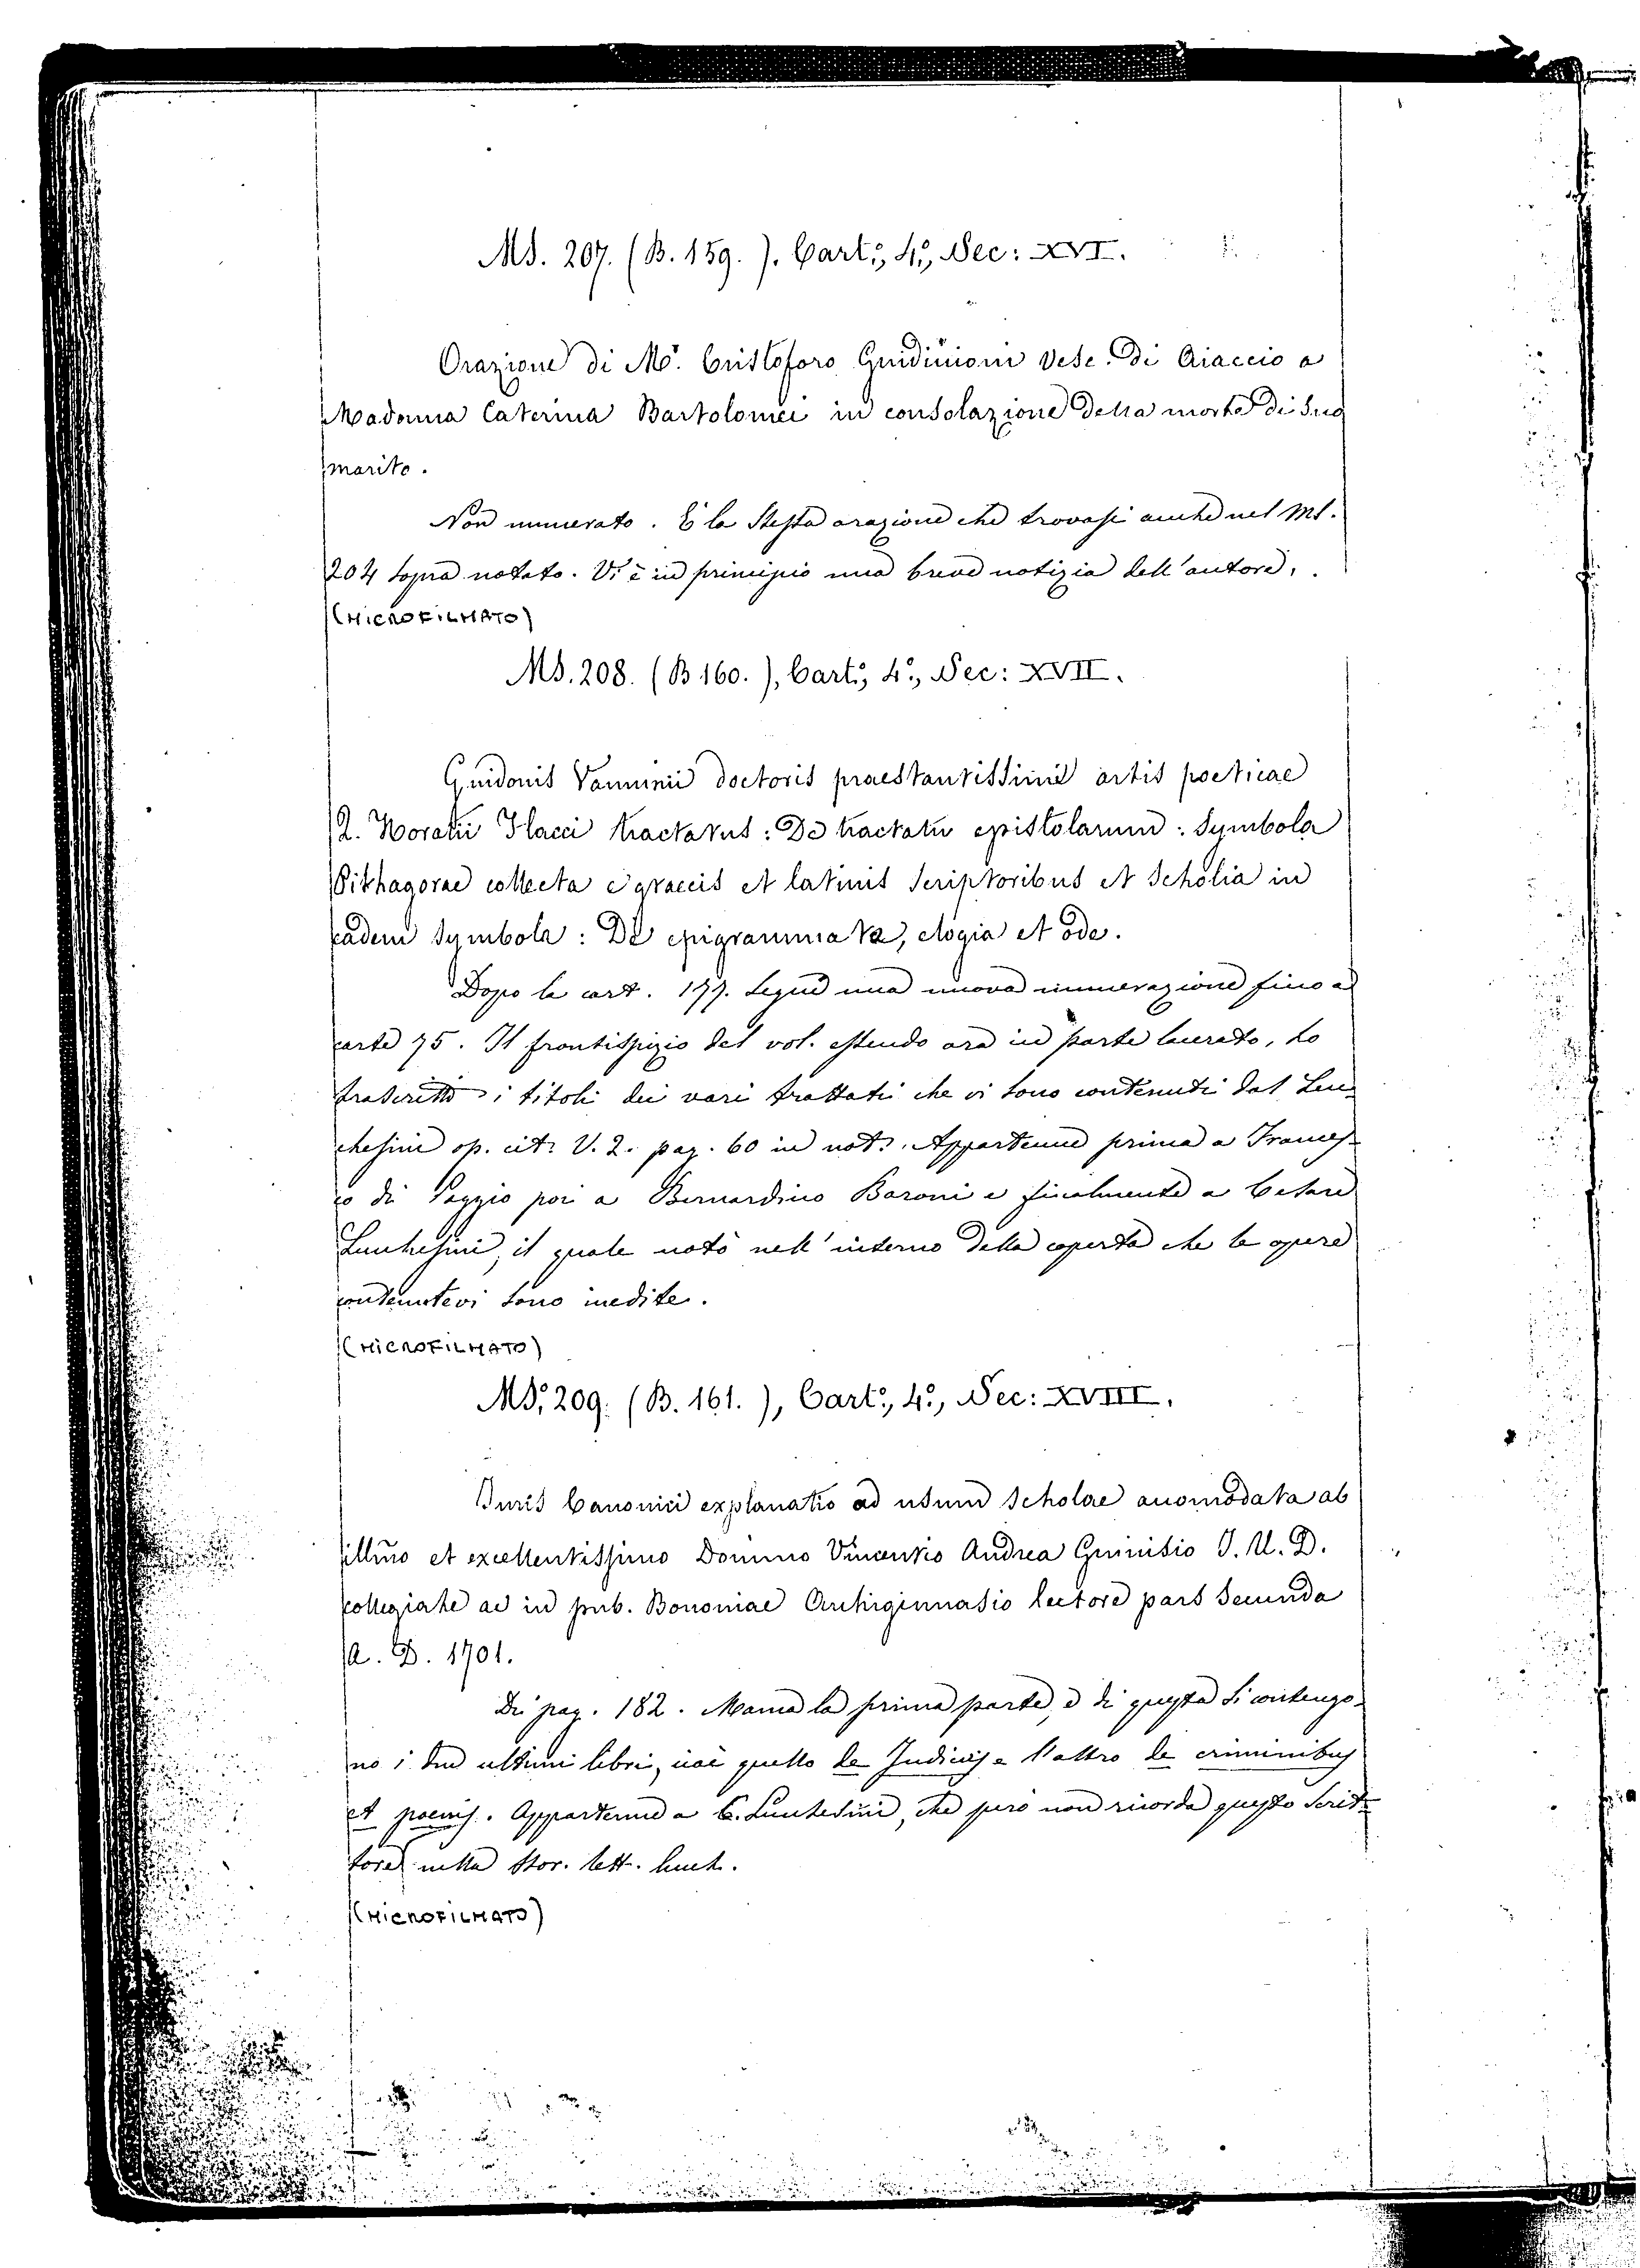 Ms. 207. (B. 159.). Cart:, 4°, Sec: XVI.
Orazione di M.r Cristoforo Guidiccioni Vesc. di Aiaccio a
Madonna Caterina Bartolomei in consolazione della morte di suo
marito.
Non numerato. È la stessa orazione che trovasi anche nel Ms.
204 sopra notato. Vi è in principio una breve notizia dell'autore.
(MICROFILMATO)
Ms. 208. (B 160.), Cart:, 4°, Sec: XVII.
Guidonis Vanninii doctoris praestantissimi artis poeticae
Q. Horatii Flacci tractatus: De tractatu epistolarum: Symbola
Pithagorae collecta e graecis et latinis scriptoribus et Scholia in
eadem symbola: De epigrammata, elogia et ode.
Dopo le cart. 177. segue una nuova numerazione fino a
carte 75. Il frontispizio del vol. essendo ora in parte lacerato, ho
trascritto i titoli dei vari trattati che vi sono contenuti dal Luc-
chesini op. cit: V. 2. pag. 60 in not: Appartenne prima a Frances-
co di Poggio poi a Bernardino Baroni e finalmente a Cesare
Lucchesini, il quale notò nell'interno della coperta che le opere
contenutevi sono inedite.
(MICROFILMATO)
Ms. 209. (B. 161.), Cart:, 4°, Sec: XVIII.
Juris Canonici explanatio ad usum Scholae accomodata ab
illmo et excellentissimo Domino Vincentio Andrea Guinisio J. U. D.
collegiate ac in pub. Bononiae Archiginnasio lectore pars secunda
A. D. 1701.
Di pag. 182. Manca la prima parte, e di questa si contengo-
no i due ultimi libri, cioè quello de Judiciis e l'altro de criminibus
et poenis. Appartenne a C. Lucchesini, che però non ricorda questo Scrit-
tore nella Stor. lett. lucch.
(MICROFILMATO)